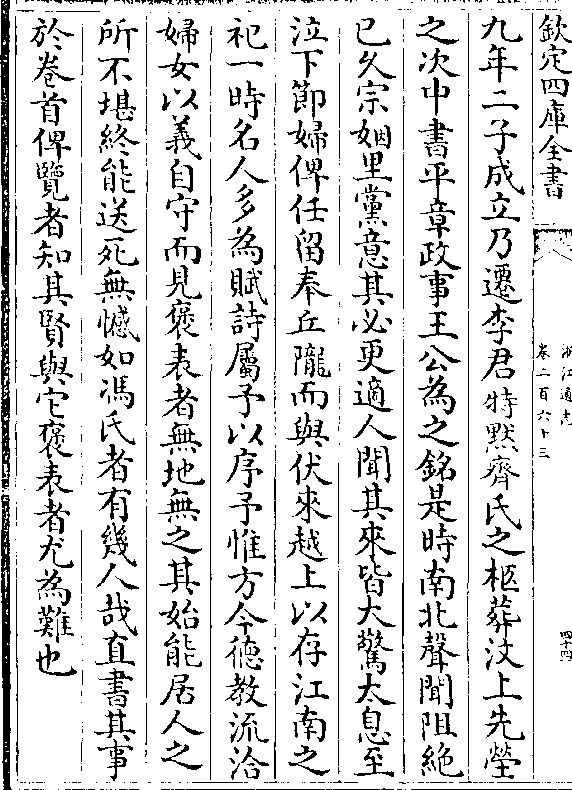 欽定四庫全書
浙江通志
卷二百六十三
四十四
九年二子成立乃遷李君特黙齊氏之柩葬汶上先塋
之次中書平章政事王公為之銘是時南北聲聞阻絶
已久宗姻里黨意其必更適人聞其來皆大驚太息至
泣下節婦俾任留奉丘隴而與伏來越上以存江南之
祀一時名人多為賦詩屬予以序予惟方今徳教流洽
婦女以義自守而見褒表者無地無之其始能居人之
所不堪終能送死無憾如馮氏者有幾人哉直書其事
於巻首俾覽者知其賢與它褒表者尤為難也